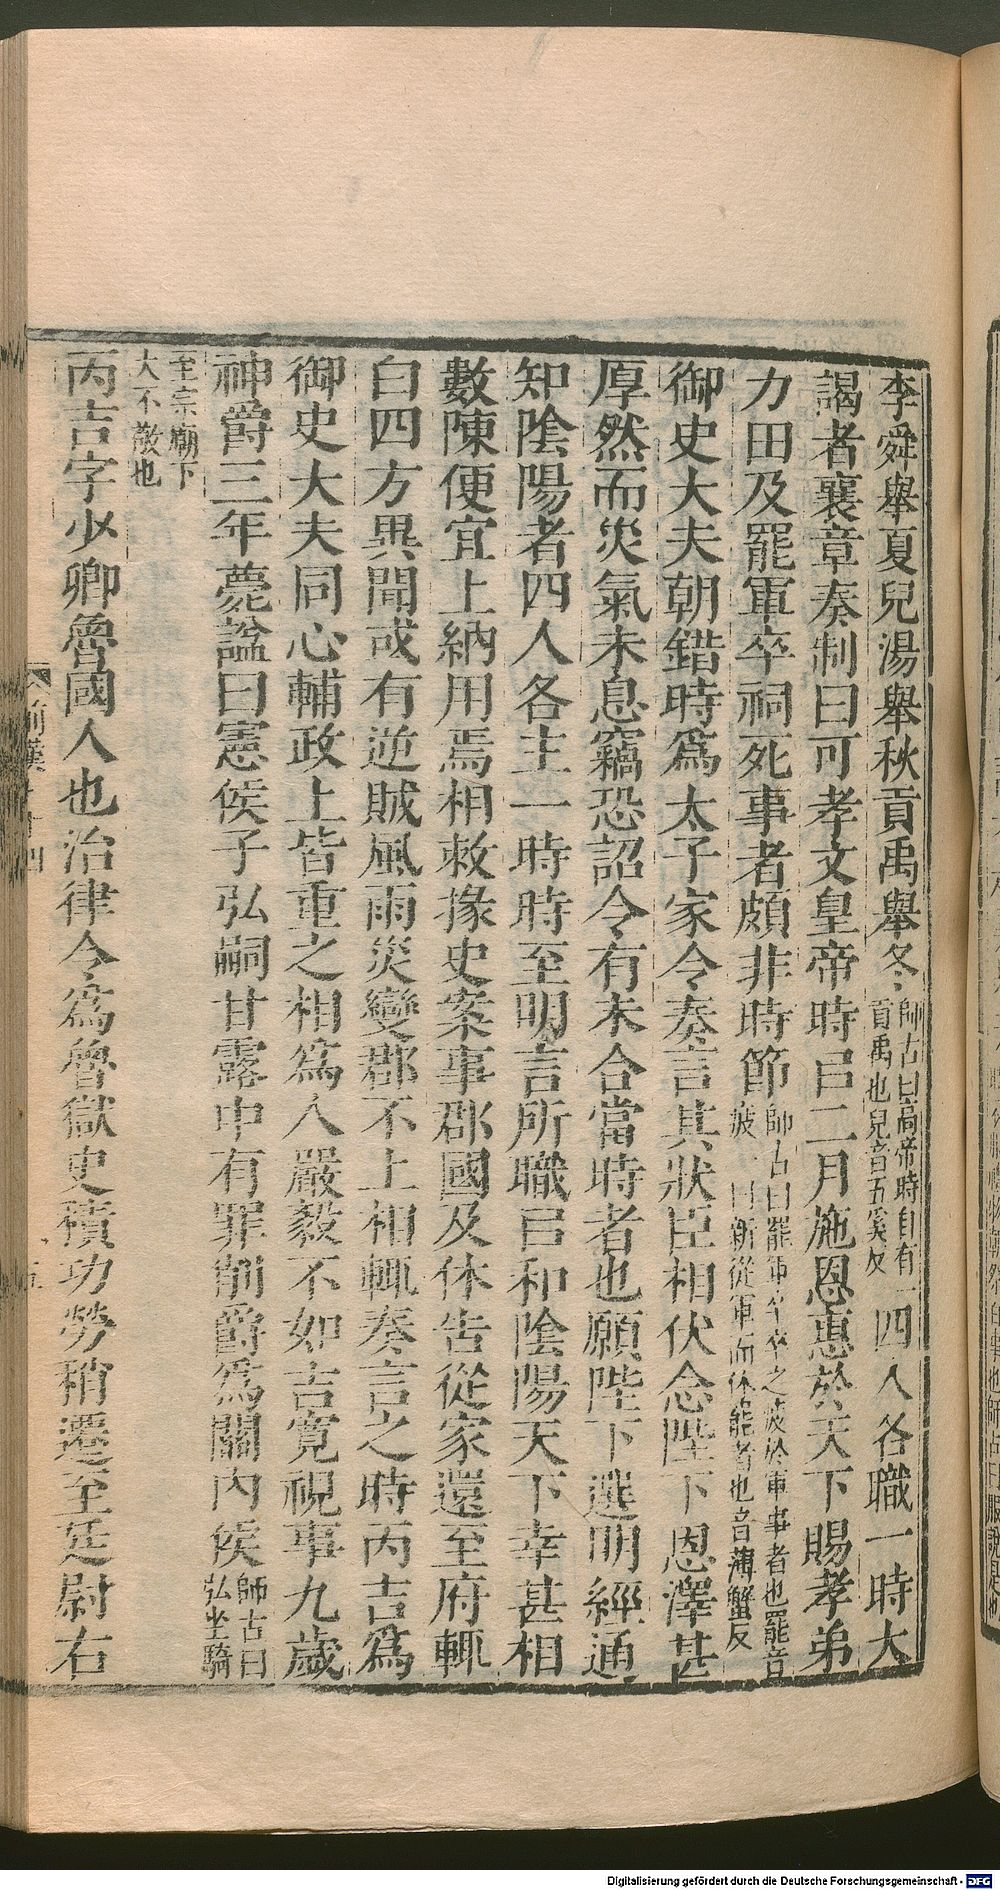 李舜舉夏兒湯舉秋貢禹舉冬師古曰高帝時自有一貢禹也兒音五奚反四人各職一時大
謁者襄章奏制曰可孝文皇帝時㠯二月施恩惠於天下賜孝弟
力田及罷軍卒祠死事者頗非時節師古曰罷軍卒卒之疲於軍事者也罷音疲一曰新從軍而休罷者也音薄蟹反
御史大夫朝錯時爲太子家令奏言其狀臣相伏念陛下恩澤甚
厚然而災氣未息竊恐詔令有未合當時者也願陛下選明經通
知陰陽者四人各主一時時至明言所職㠯和陰陽天下幸甚相
數陳便宜上納用焉相敕掾史案事郡國及休告從家還至府輒
白四方異聞或有逆賊風雨災變郡不上相輒奏言之時丙吉爲
御史大夫同心輔政上皆重之相爲人嚴毅不如吉寬視事九歲
神爵三年薨諡曰憲侯子弘嗣甘露中有罪削爵爲關內侯師古曰弘坐騎
至宗廟下大不敬也
丙吉字少卿魯國人也治律令爲魯獄史積功勞稍遷至廷尉右
前漢
Digitalisierung gefördert durch die Deutsche Forschungsgemeinschaft - DFG